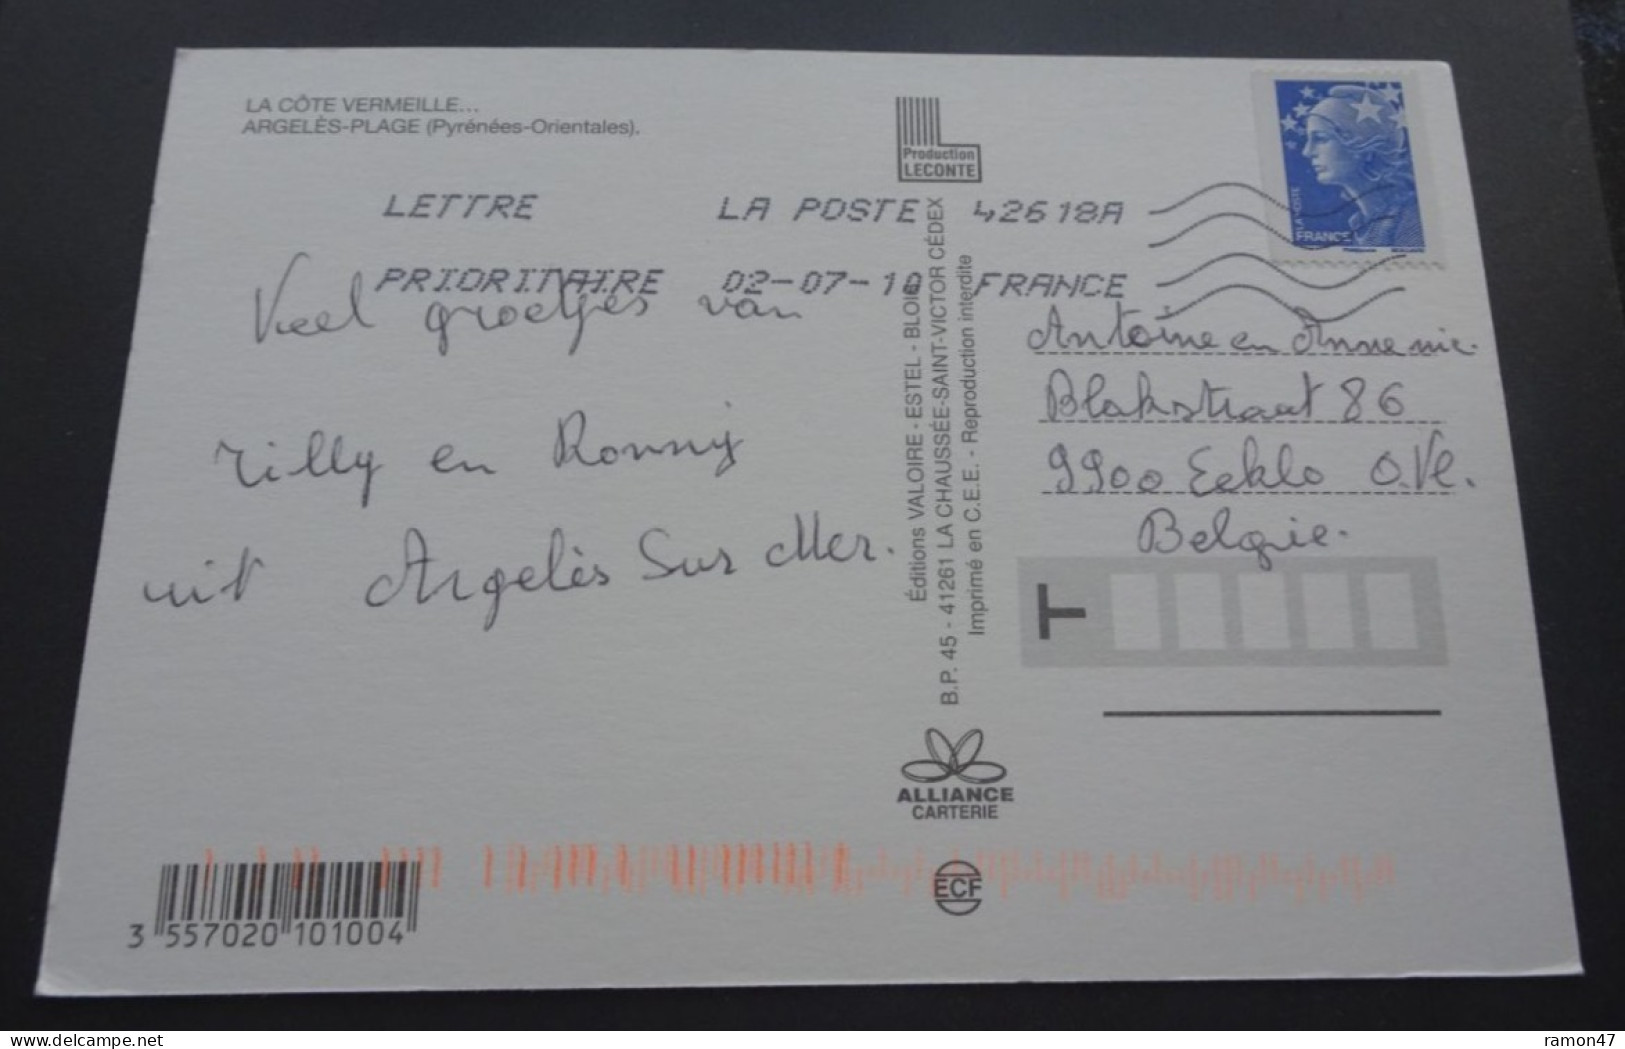 LA CÔTE VERMEILLE...
ARGELÈS-PLAGE (Pyrénées-Orientales).
Production
LECONTE
LETTRE LA POSTE 42618A
PRIORITAIRE 02-07-10 FRANCE
LA POSTE
FRANCE
Veel groetjes van
Rilly en Ronny
uit Argelès Sur Mer.
Éditions VALOIRE - ESTEL - BLOIS
B.P. 45 - 41261 LA CHAUSSÉE-SAINT-VICTOR CÉDEX
Imprimé en C.E.E. - Reproduction interdite
Antoine en Annemie.
Blakstraat 86
9900 Eeklo O.Vl.
Belgie.
T
ALLIANCE
CARTERIE
ECF
3 557020 101004
delcampe.net
ramon47